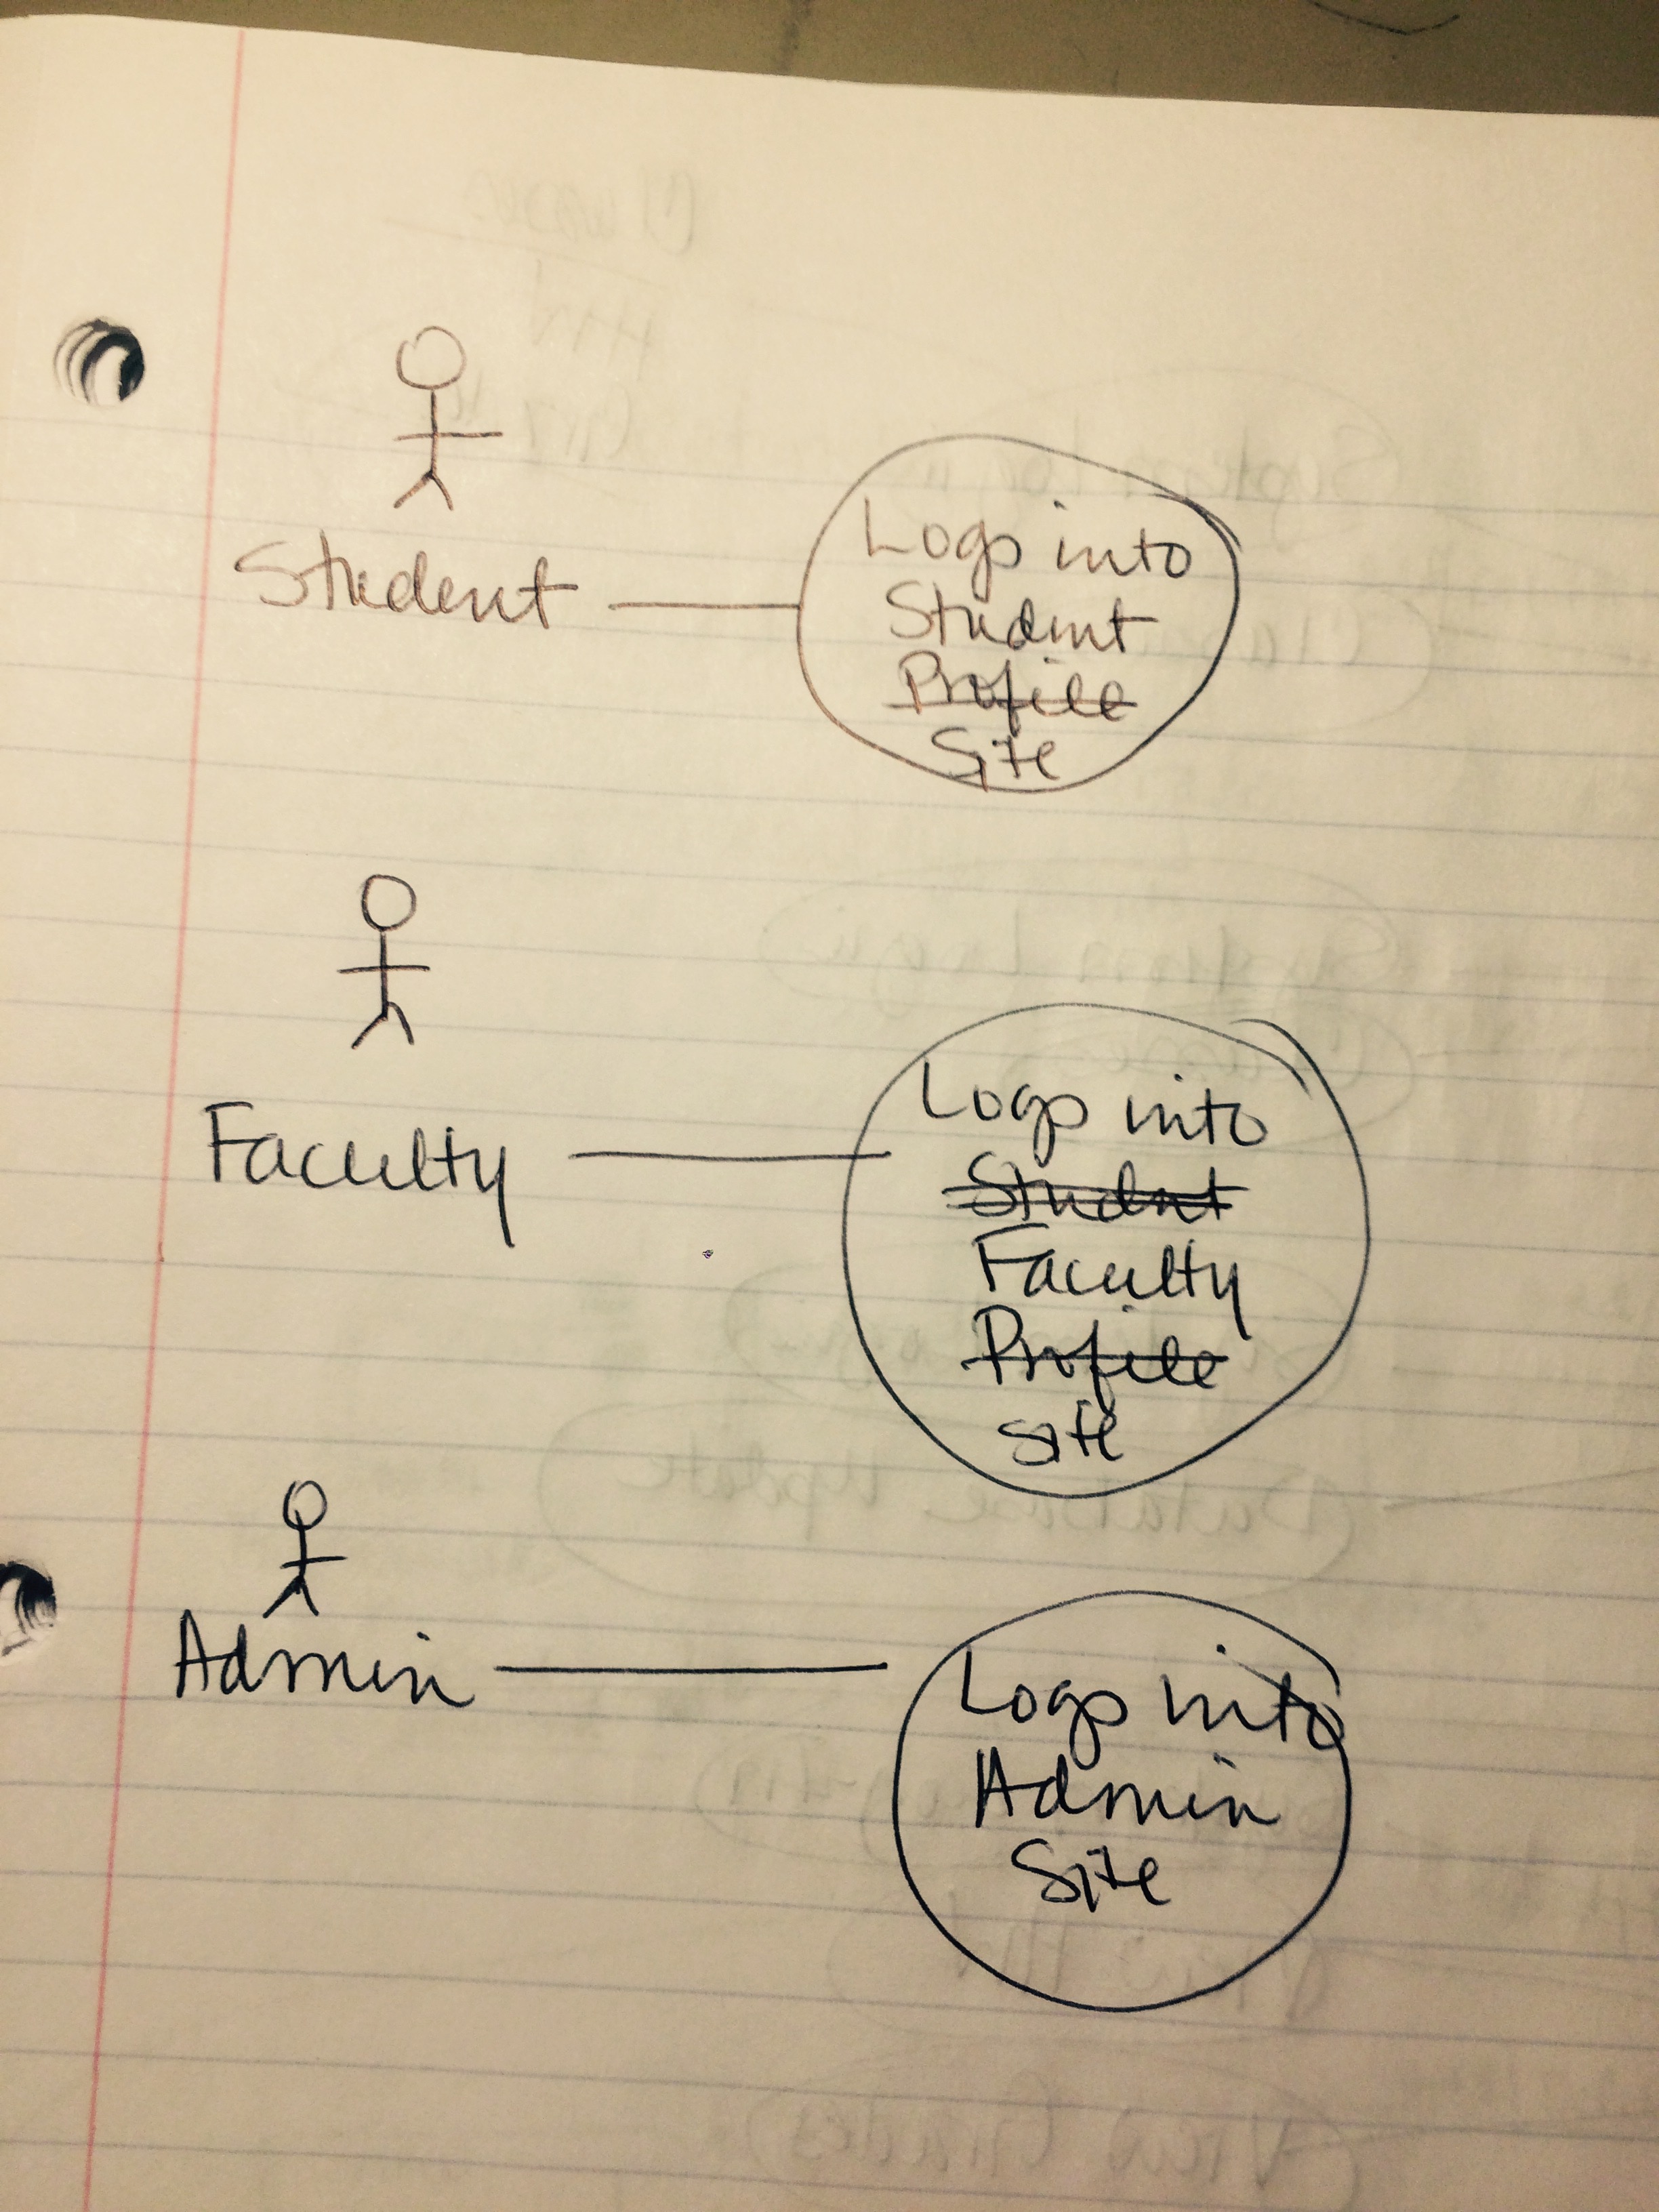 Student
Logs into
Student
Profile
Site
Faculty
Logs into
Student
Faculty
Profile
site
Admin
Logs into
Admin
Site